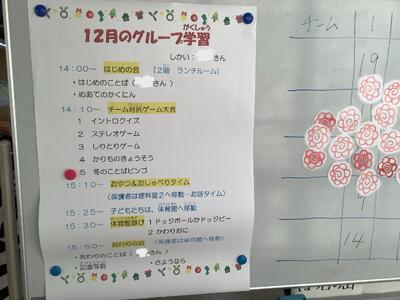 がくしゅう
12月のグループ学習
しかい： さん
14：00～ はじめの会 [2階 ランチルーム]
・はじめのことば（ さん）
・めあてのかくにん
14：10～ チーム対抗ゲーム大会
1 イントロクイズ
2 ステレオゲーム
3 しりとりゲーム
4 かりものきょうそう
5 冬のことばビンゴ
15：10～ おやつ＆おしゃべりタイム
（保護者は理科室2へ移動…お話タイム）
15：25～ 子どもたちは、体育館へ移動
15：30～ 体育館遊び 1 ドッジボールかドッジビー
2 かわりおに
15：50～ おわりの会 （保護者は体育館へ移動）
・おわりのことば（ さん）
・記念写真 ・さようなら
チーム 1
19
14